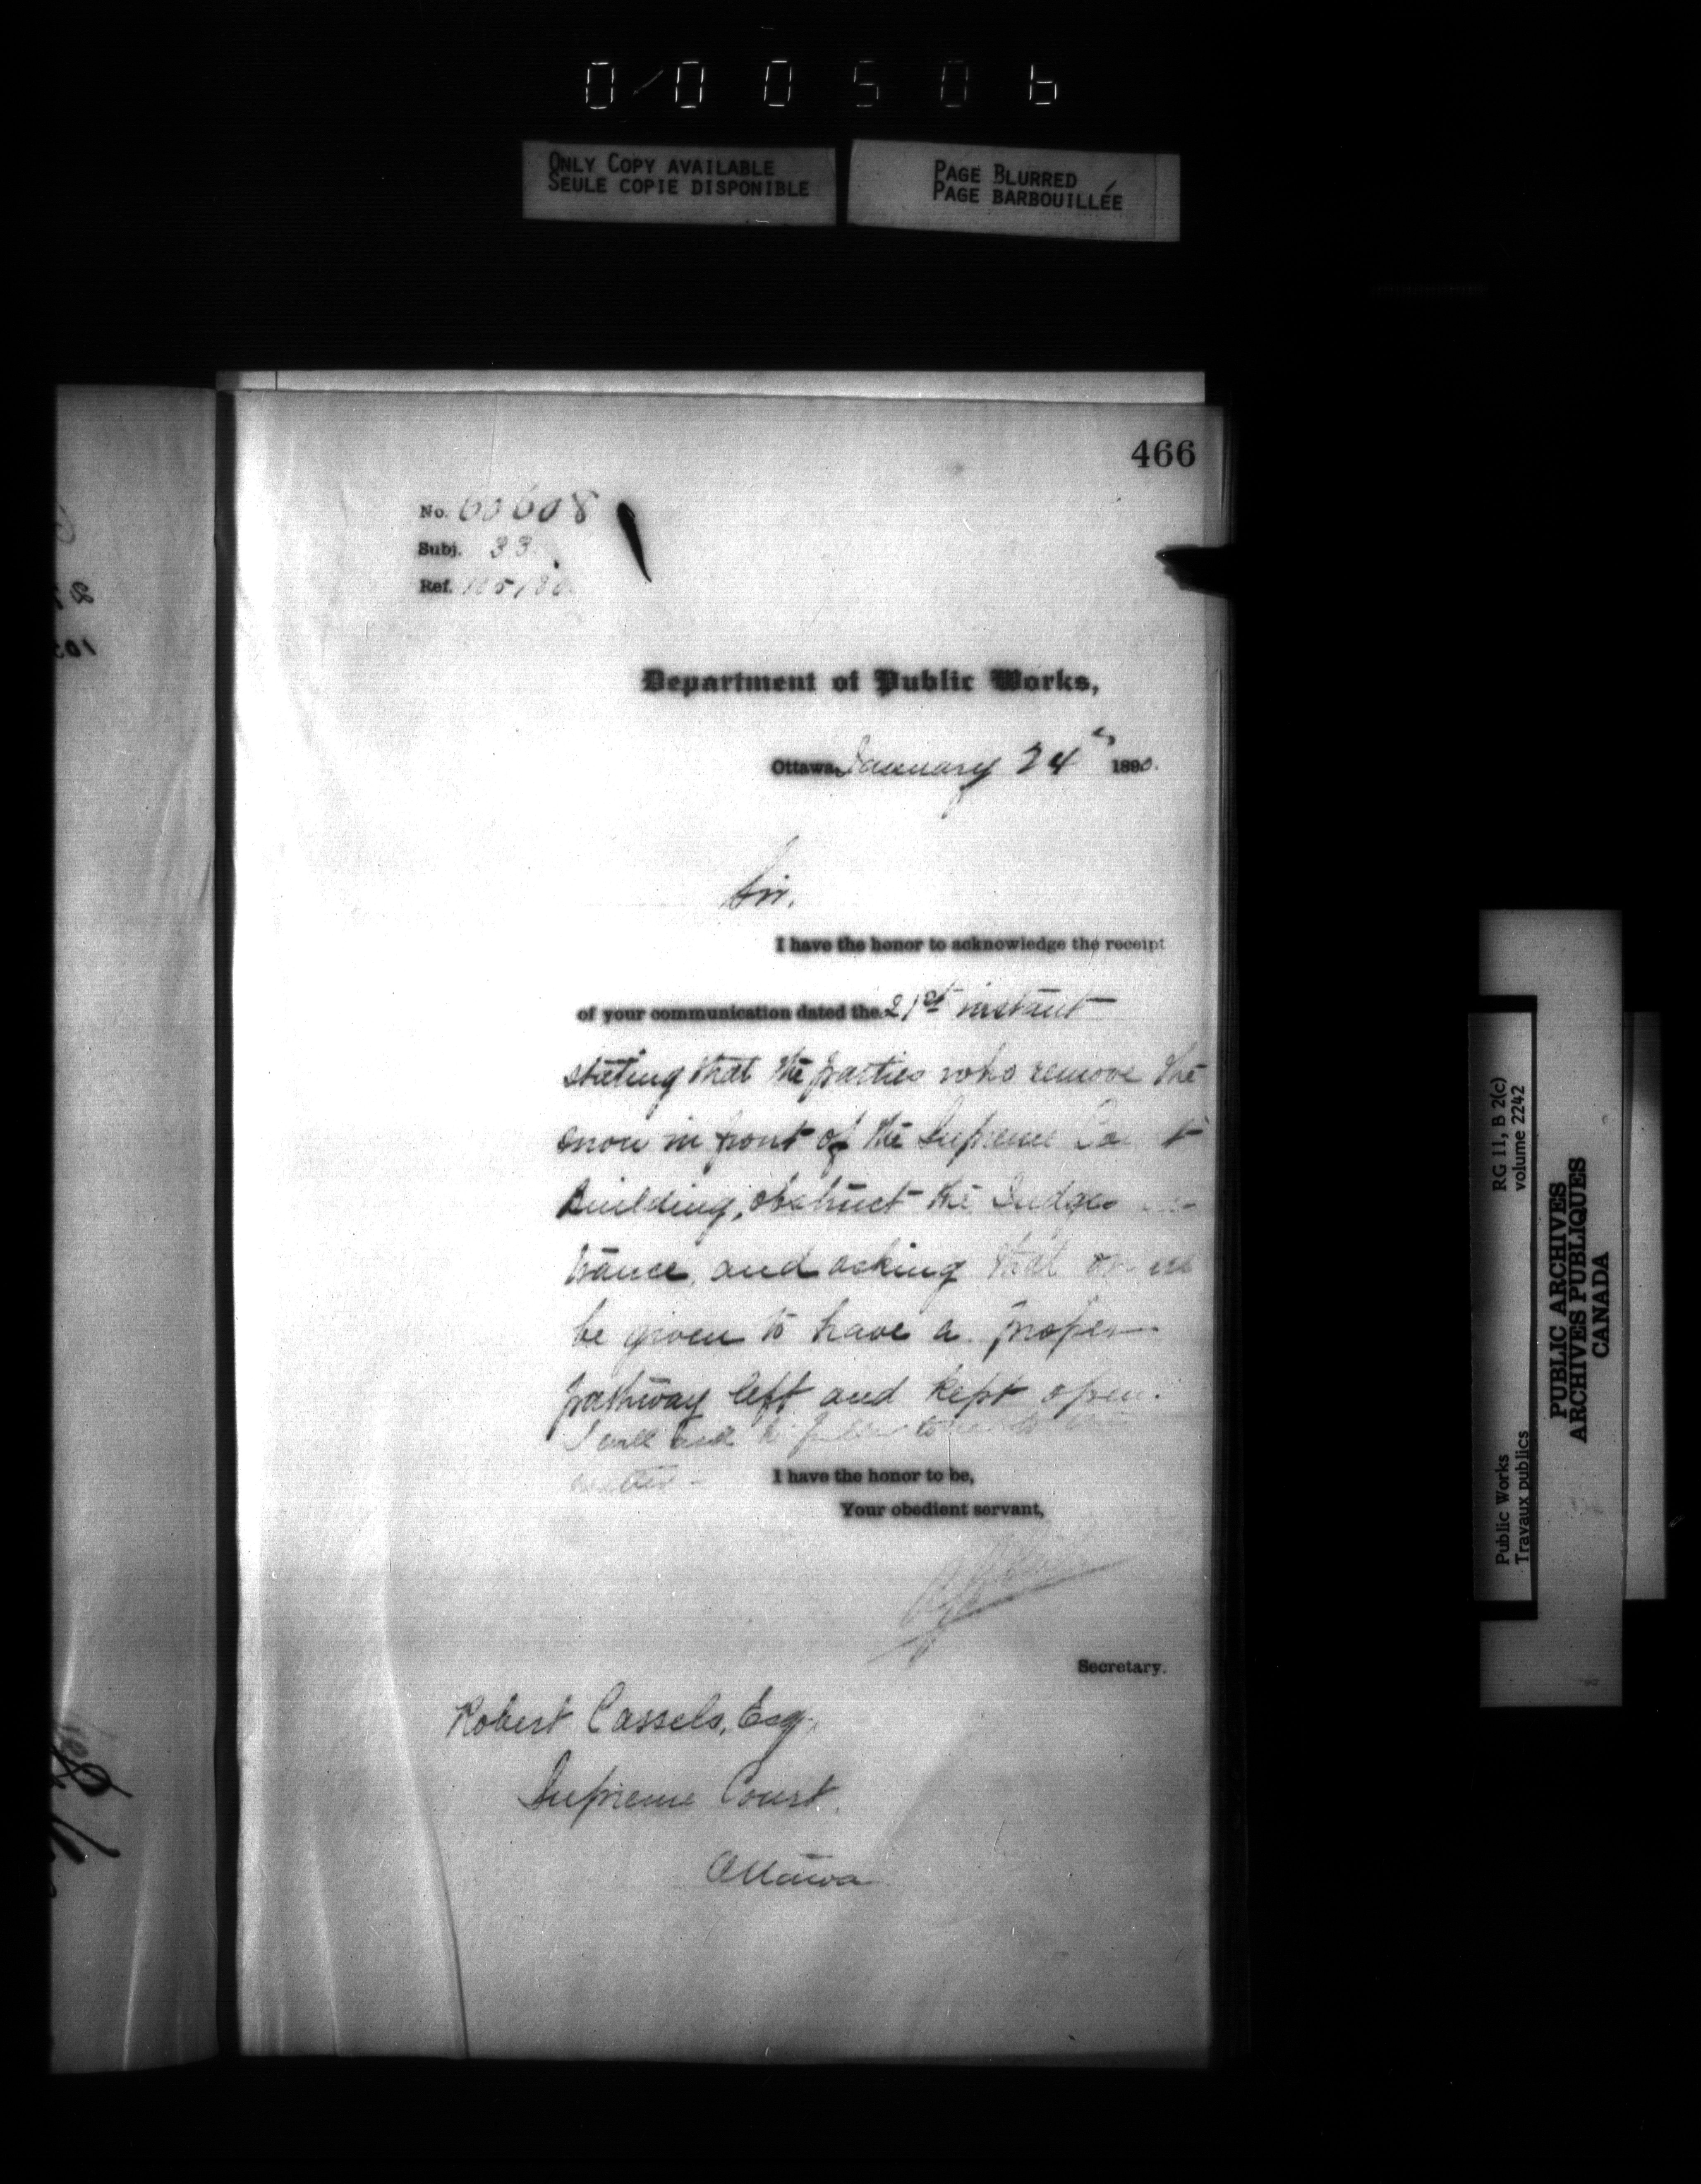 0/00506
ONLY COPY AVAILABLE
SEULE COPIE DISPONIBLE
PAGE BLURRED
PAGE BARBOUILLÉE
466
No. 60608
Subj. 33
Ref.
Department of Public Works,
Ottawa, January 24th 1890.
Sir,
I have the honor to acknowledge the receipt
of your communication dated the 21st instant
stating that the parties who remove the
snow in front of the Supreme Court
Building, obstruct the Judges en-
trance, and asking that orders
be given to have a proper
pathway left and kept open.
I will ask
matter
I have the honor to be,
Your obedient servant,
Secretary.
Robert Cassels, Esq.,
Supreme Court,
Ottawa
Public Works
Travaux publics
RG 11, B 2(c)
volume 2242
PUBLIC ARCHIVES
ARCHIVES PUBLIQUES
CANADA